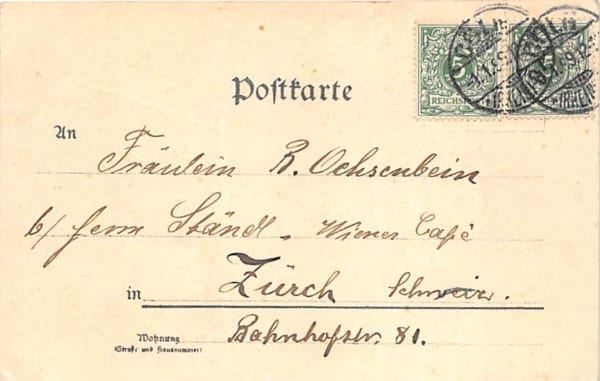 Postkarte
5
REICHSPOST
5
CÖLN
CÖLN
An
Fräulein R. Ochsenbein
b/ Herrn Ständl - Wiener Café
in Zürich Schweiz.
Wohnung
(Straße und Hausnummer)
Bahnhofstr. 81.